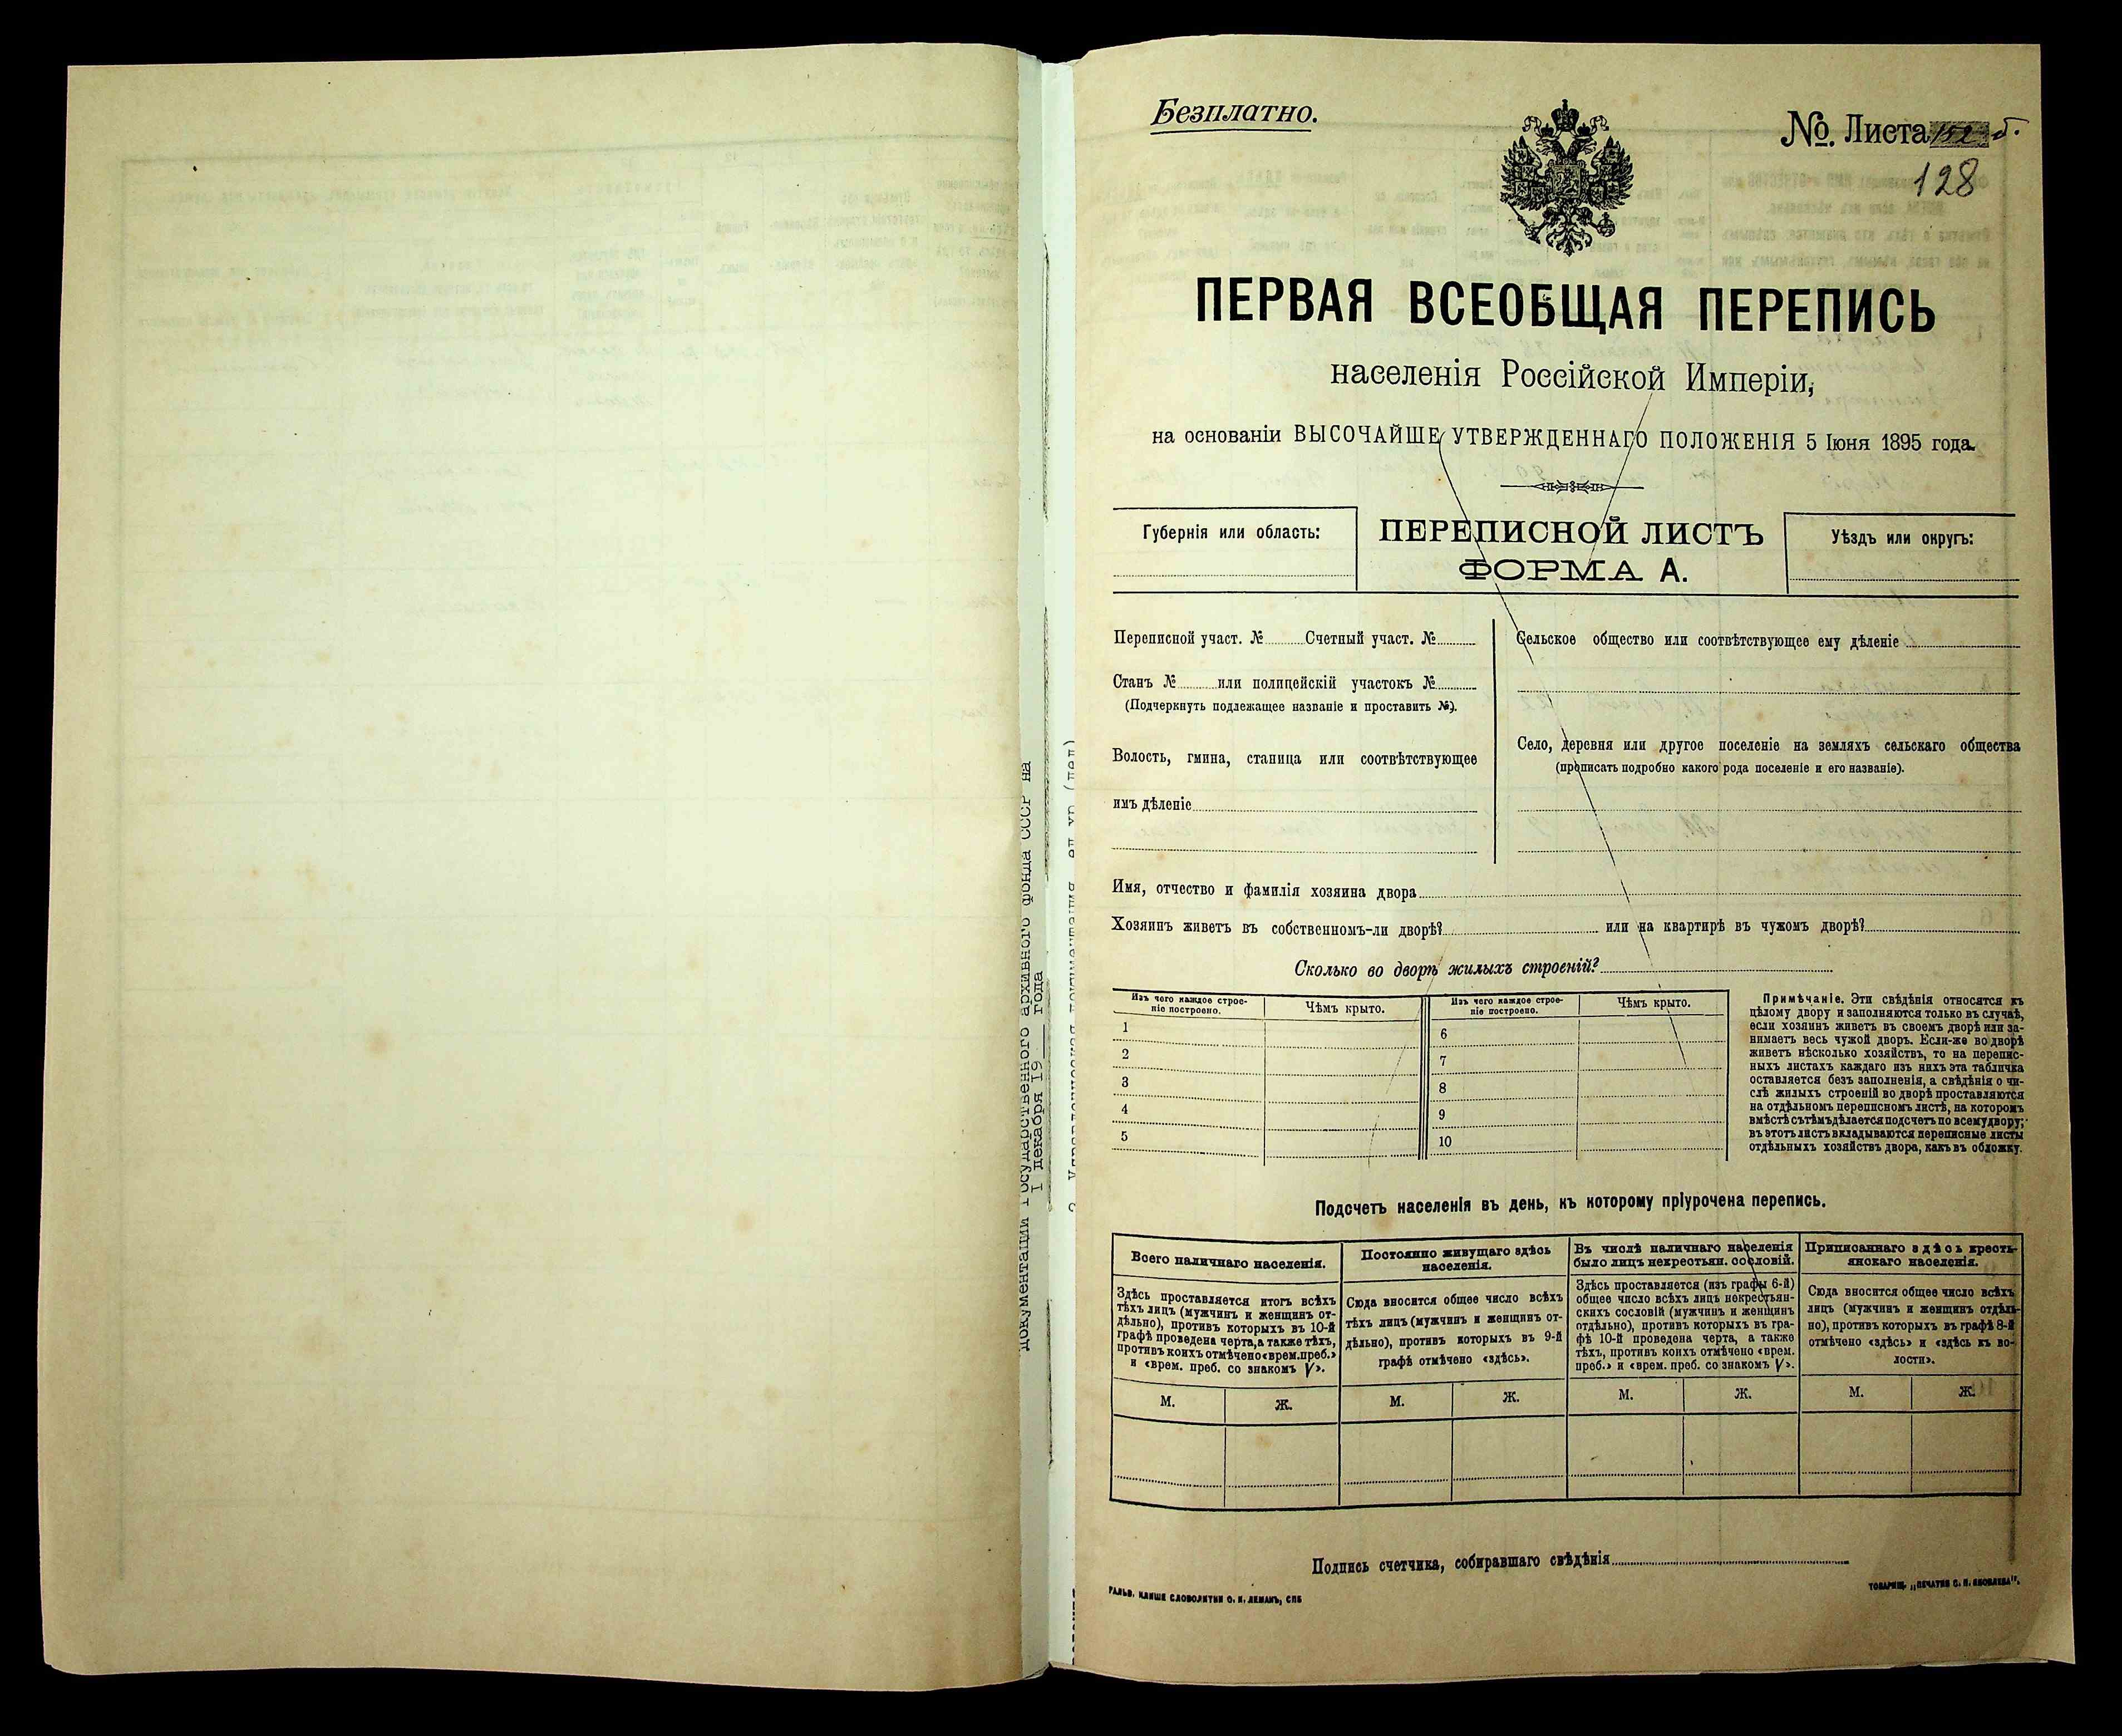 Безплатно.
№. Листа 152 б.
128
ПЕРВАЯ ВСЕОБЩАЯ ПЕРЕПИСЬ
населенія Россійской Имперіи,
на основаніи ВЫСОЧАЙШЕ УТВЕРЖДЕННАГО ПОЛОЖЕНІЯ 5 Іюня 1895 года.
Губернія или область:
ПЕРЕПИСНОЙ ЛИСТЪ
ФОРМА А.
Уѣздъ или округъ:
Переписной участ. № Счетный участ. №
Станъ № или полицейскій участокъ №
(Подчеркнуть подлежащее названіе и проставить №).
Волость, гмина, станица или соотвѣтствующее
имъ дѣленіе
Сельское общество или соотвѣтствующее ему дѣленіе
Село, деревня или другое поселеніе на земляхъ сельскаго общества
(прописать подробно какого рода поселеніе и его названіе).
Имя, отчество и фамилія хозяина двора
Хозяинъ живетъ въ собственномъ-ли дворѣ? или на квартирѣ въ чужомъ дворѣ?
Сколько во дворѣ жилыхъ строеній?
Изъ чего каждое строе-
ніе построено.
Чѣмъ крыто.
1
2
3
4
5
Изъ чего каждое строе-
ніе построено.
Чѣмъ крыто.
6
7
8
9
10
Примѣчаніе. Эти свѣдѣнія относятся къ
цѣлому двору и заполняются только въ случаѣ,
если хозяинъ живетъ въ своемъ дворѣ или за-
нимаетъ весь чужой дворъ. Если-же во дворѣ
живетъ нѣсколько хозяйствъ, то на перепис-
ныхъ листахъ каждаго изъ нихъ эта табличка
оставляется безъ заполненія, а свѣдѣнія о чи-
слѣ жилыхъ строеній во дворѣ проставляются
на отдѣльномъ переписномъ листѣ, на которомъ
вмѣстѣ съ тѣмъ дѣлается подсчетъ по всему двору;
въ этотъ листъ вкладываются переписные листы
отдѣльныхъ хозяйствъ двора, какъ въ обложку.
Подсчетъ населенія въ день, къ которому пріурочена перепись.
Всего наличнаго населенія.
Здѣсь проставляется итогъ всѣхъ
тѣхъ лицъ (мужчинъ и женщинъ от-
дѣльно), противъ которыхъ въ 10-й
графѣ проведена черта, а также тѣхъ,
противъ коихъ отмѣчено «врем. преб.»
и «врем. преб. со знакомъ V».
М. Ж.
Постоянно живущаго здѣсь
населенія.
Сюда вносится общее число всѣхъ
тѣхъ лицъ (мужчинъ и женщинъ от-
дѣльно), противъ которыхъ въ 9-й
графѣ отмѣчено «здѣсь».
М. Ж.
Въ числѣ наличнаго населенія
было лицъ некрестьян. сословій.
Здѣсь проставляется (изъ графы 6-й)
общее число всѣхъ лицъ некрестьян-
скихъ сословій (мужчинъ и женщинъ
отдѣльно), противъ которыхъ въ гра-
фѣ 10-й проведена черта, а также
тѣхъ, противъ коихъ отмѣчено «врем.
преб.» и «врем. преб. со знакомъ V».
М. Ж.
Приписаннаго здѣсь кресть-
янскаго населенія.
Сюда вносится общее число всѣхъ
лицъ (мужчинъ и женщинъ отдѣль-
но), противъ которыхъ въ графѣ 8-й
отмѣчено «здѣсь» и «здѣсь къ во-
лости».
М. Ж.
Подпись счетчика, собиравшаго свѣдѣнія
ГАЛЬВ. КЛИШЕ СЛОВОЛИТНИ О. И. ЛЕМАНЪ, СПБ
ТОВАРИЩ. „ПЕЧАТНЯ С. П. ЯКОВЛЕВА".
документации Государственного архивного фонда СССР на
1 декабря 19 года